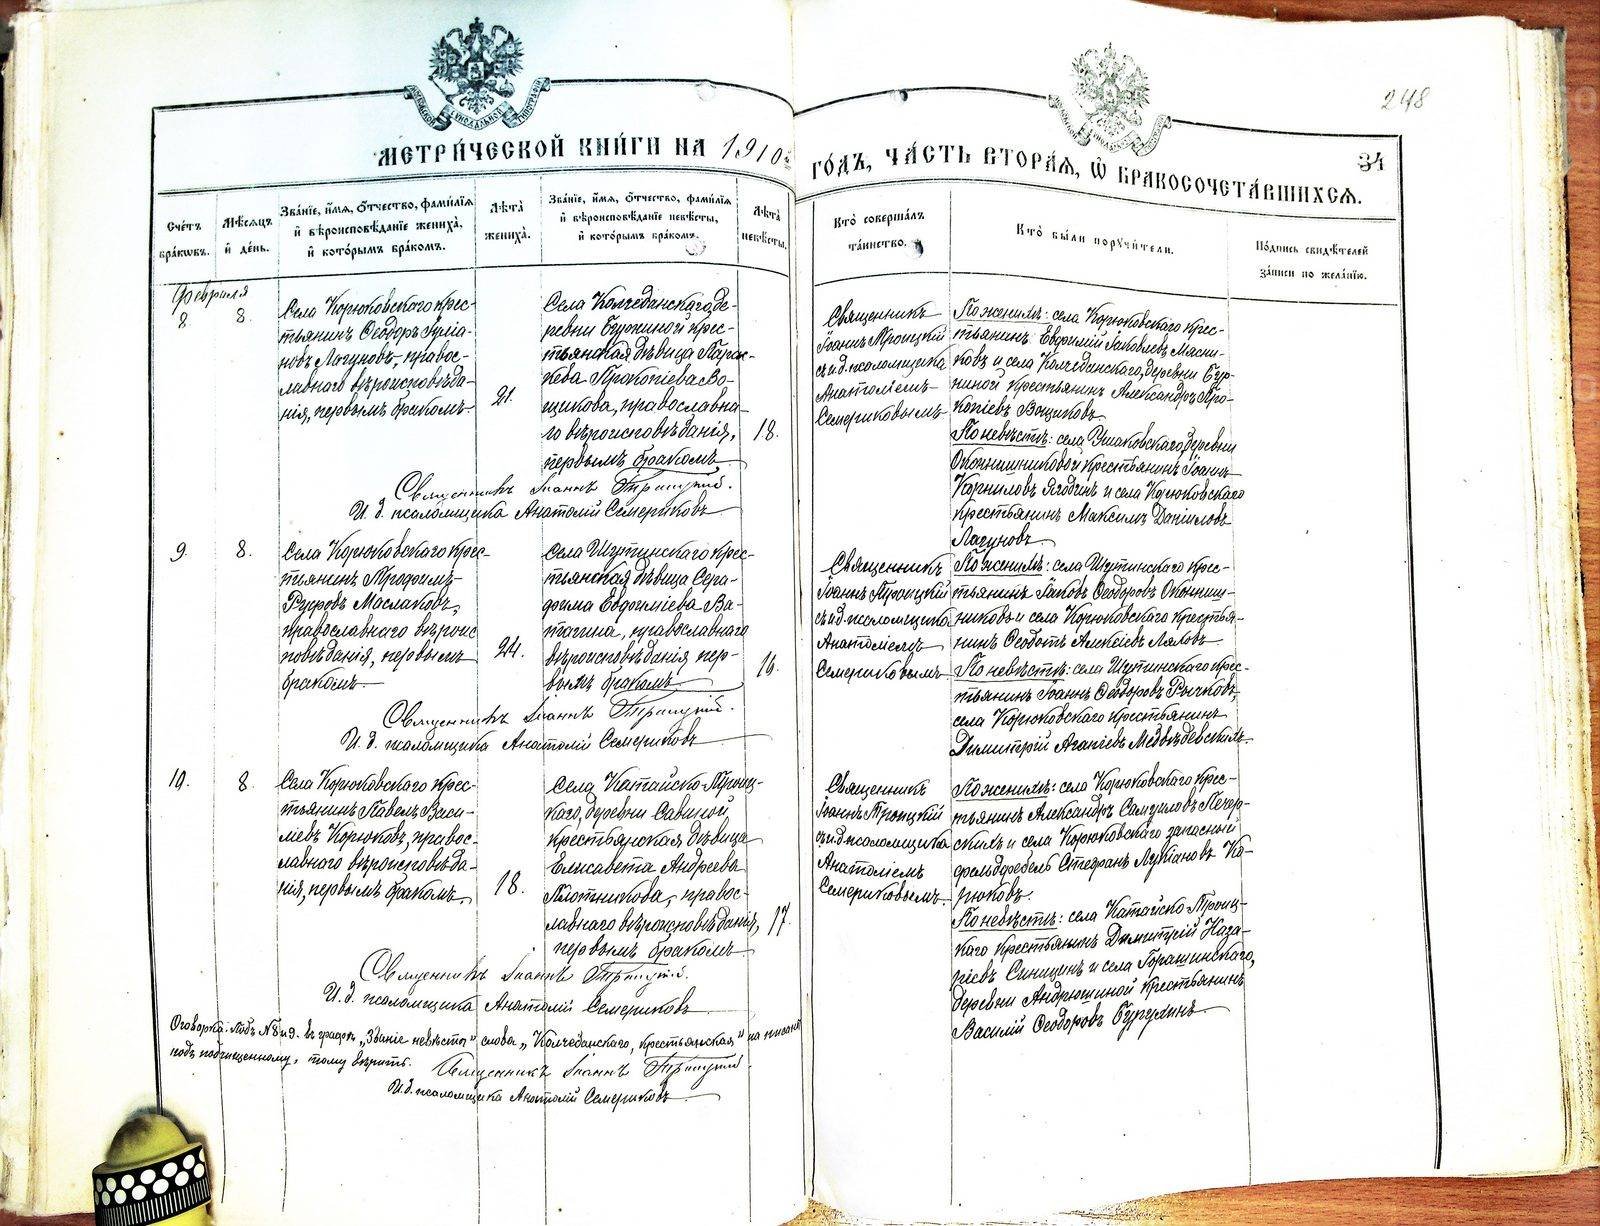 248
МЕТРИ́ЧЕСКОЙ КНИ́ГИ НА 1910й
ГО́ДЪ, ЧА́СТЬ ВТОРА́Я, Ѿ БРАКОСОЧЕТА́ВШИХСЯ.
34
Сче́тъ бра́кωвъ.
Мѣ́сяцъ и҆ де́нь.
Зва́нїе, и҆́мя, ѻ҆́тчество, фами́лїя
и҆ вѣроисповѣ́данїе жениха̀,
и҆ кото́рымъ бра́комъ.
Лѣ́та жениха̀.
Зва́нїе, и҆́мя, ѻ҆́тчество, фами́лїя
и҆ вѣроисповѣ́данїе невѣ́сты,
и҆ кото́рымъ бра́комъ.
Лѣ́та невѣ́сты.
Кто̀ соверша́лъ
та́инство.
Кто̀ бы́ли порꙋчи́тели.
По́дпись свидѣ́телей
за́писи по жела́нїю.
Февраля
8
8.
Села Корюковскаго крес-
тьянинъ Ѳеодоръ Іуліа-
новъ Лагуновъ, правос-
лавнаго вѣроисповѣда-
нія, первымъ бракомъ
21.
Села Колчеданскаго, де-
ревни Бурниной крес-
тьянская дѣвица Парас-
кева Прокопіева Во-
щикова, православна-
го вѣроисповѣданія,
первымъ бракомъ
18.
Священникъ
Іоаннъ Троицкій
съ и.д. псаломщика
Анатоліемъ
Семериковымъ
По женихѣ: села Корюковскаго крес-
тьянинъ Евфимій Іаковлевъ Мясни-
ковъ и села Колчеданскаго, деревни Бур-
ниной крестьянинъ Александръ Про-
копіевъ Вощиковъ
По невѣстѣ: села Ушаковскаго, деревни
Оконишниковой крестьянинъ Іоаннъ
Корниловъ Ягодинъ и села Корюковскаго
крестьянинъ Максимъ Даніиловъ
Лагуновъ
Священникъ Іоаннъ Троицкій.
И. д. псаломщика Анатолій Семериковъ
9.
8.
Села Корюковскаго крес-
тьянинъ Трофимъ
Маслаковъ,
православнаго вѣроис
повѣданія, первымъ
бракомъ
24.
Села Шутинскаго крес-
тьянская дѣвица Сера-
фима Евфиміева Ва-
тагина, православнаго
вѣроисповѣданія пер-
вымъ бракомъ
16.
Священникъ
Іоаннъ Троицкій
съ и.д. псаломщика
Анатоліемъ
Семериковымъ
По женихѣ: села Шутинскаго крес-
тьянинъ Іаковъ Ѳеодоровъ Окониш-
никовъ и села Корюковскаго крестья-
нинъ Ѳеодотъ Алексіевъ Ляховъ
По невѣстѣ: села Шутинскаго крес-
тьянинъ Іоаннъ Ѳеодоровъ Рычковъ,
села Корюковскаго крестьянинъ
Димитрій Агапіевъ Медвѣдевскихъ
Священникъ Іоаннъ Троицкій.
И. д. псаломщика Анатолій Семериковъ
10.
8.
Села Корюковскаго крес-
тьянинъ Павелъ Васи-
ліевъ Корюковъ, правос-
лавнаго вѣроисповѣда-
нія, первымъ бракомъ
18.
Села Катайско-Троиц-
каго, деревни Савиной
крестьянская дѣвица
Елисавета Андреева
Плотникова, правос-
лавнаго вѣроисповѣданія,
первымъ бракомъ
17.
Священникъ
Іоаннъ Троицкій
съ и.д. псаломщика
Анатоліемъ
Семериковымъ
По женихѣ: села Корюковскаго крес-
тьянинъ Александръ Самуиловъ Печер-
скихъ и села Корюковскаго запасный
фельдфебель Стефанъ Лукіановъ Ко-
рюковъ.
По невѣстѣ: села Катайско-Троиц-
каго крестьянинъ Димитрій Наза-
ріевъ Синицинъ и села
деревни Андрюшиной крестьянинъ
Василій Ѳеодоровъ
Священникъ Іоаннъ Троицкій.
И. д. псаломщика Анатолій Семериковъ
Оговорка: Подъ №8 и 9. въ графѣ „Званіе невѣсты" слова „Колчеданскаго, крестьянская" написаны
подъ подчищенному, тому вѣрить.
Священникъ Іоаннъ Троицкій.
И. д. псаломщика Анатолій Семериковъ